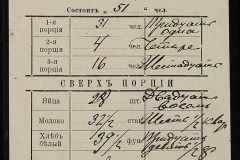 Состоитъ „51" чел.
1-я порція 31 чел. Тридцать одна
2-я порція 4 чел. Четыре
3-я порція 16 чел. Шестнадцать
СВЕРХЪ ПОРЦІИ
Яйца 28 шт. Двадцать восемь
Молоко 32½ Шесть
Хлѣбъ бѣлый 39½ фун Тридцать девять